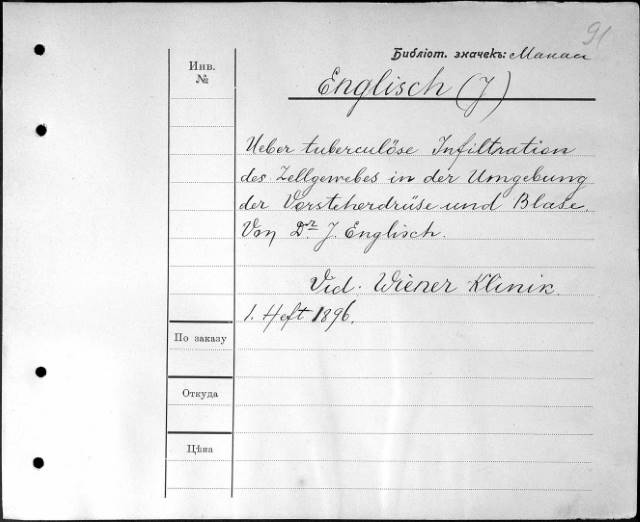 91
Библіот. значекъ: Манасс
Инв.
№
Englisch (J)
Ueber tuberculöse Infiltration
des Zellgewebes in der Umgebung
der Vorsteherdrüse und Blase.
Von Dr. J. Englisch.
Vid. Wiener Klinik.
1. Heft 1896.
По заказу
Откуда
Цѣна